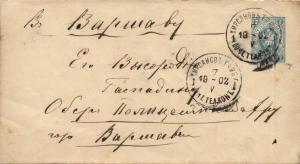 Въ Варшаву
Его Высокород
Господину
Оберъ Полицеймейстеру
гор. Варшавы
7
19-02
V
7
19-02
V